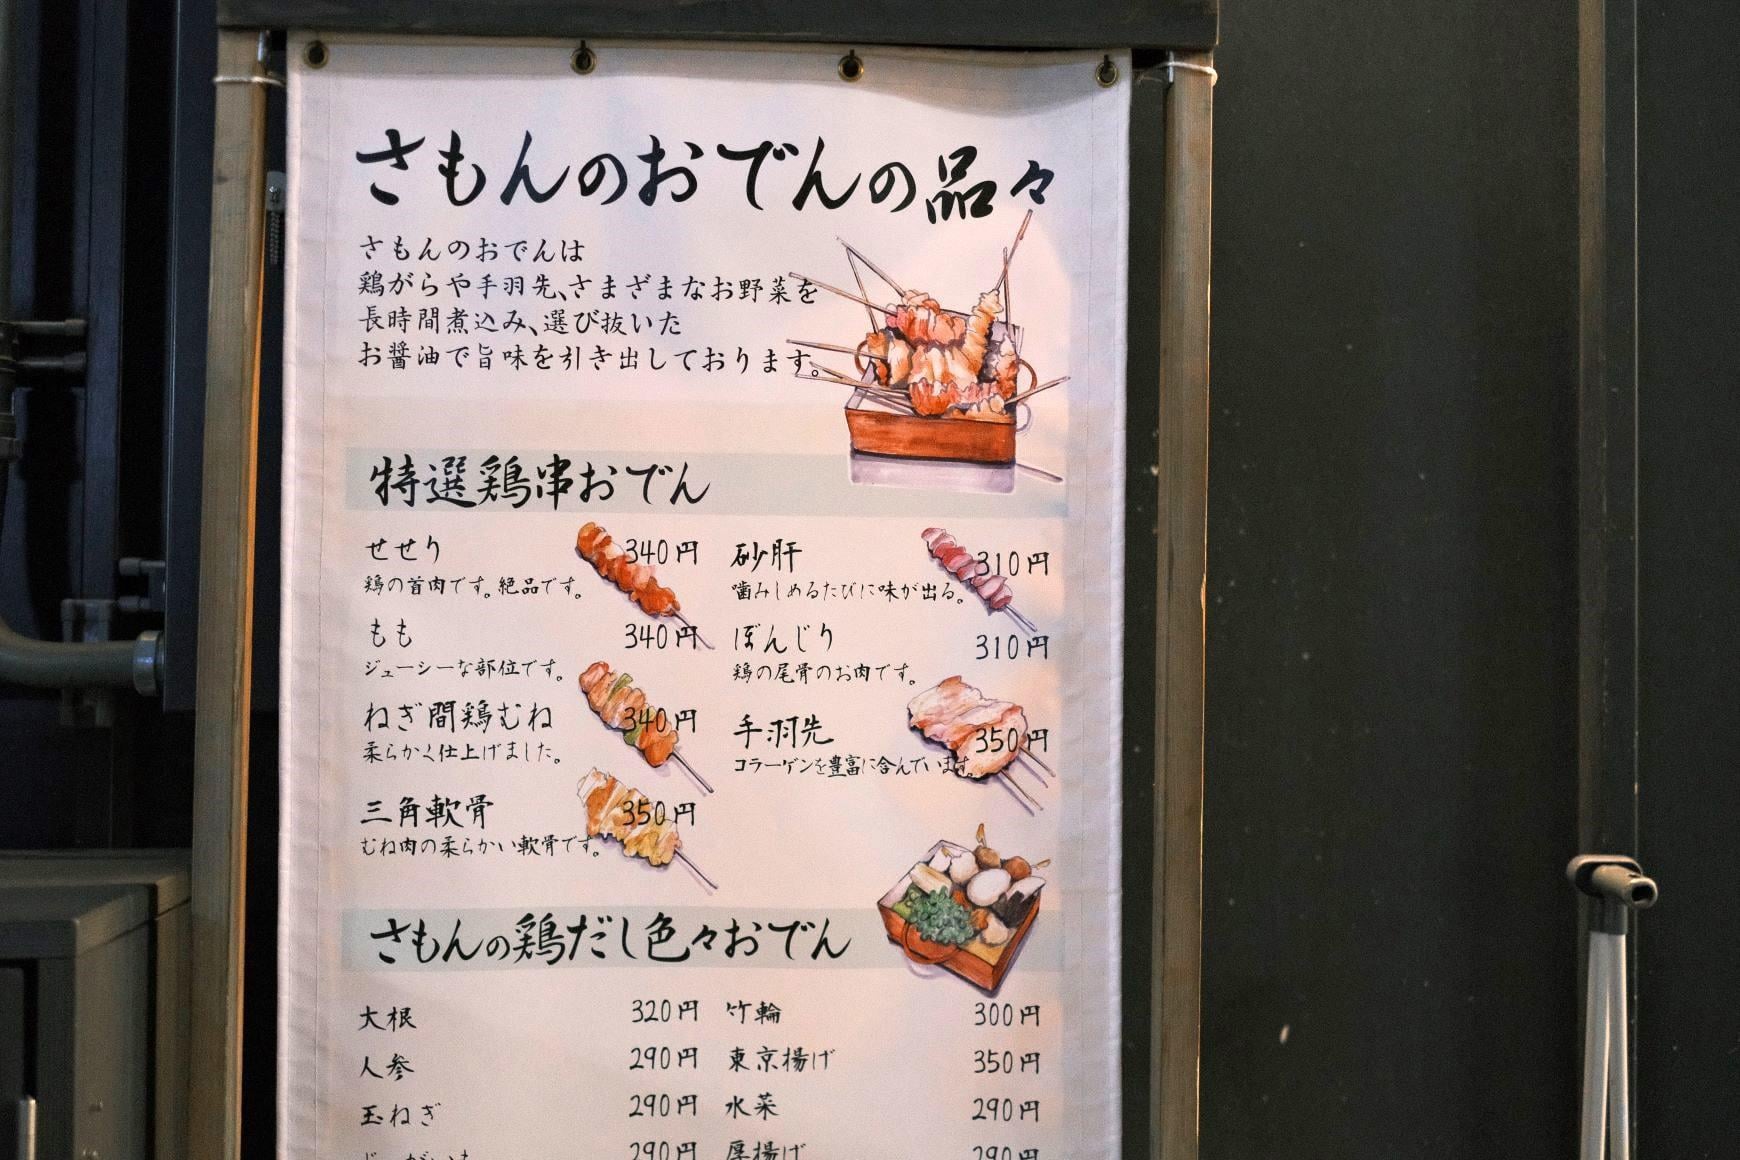 さもんのおでんの品々
さもんのおでんは
鶏がらや手羽先、さまざまなお野菜を
長時間煮込み、選び抜いた
お醤油で旨味を引き出しております。
特選鶏串おでん
せせり 340円
鶏の首肉です。絶品です。
もも 340円
ジューシーな部位です。
ねぎ間鶏むね 340円
柔らかく仕上げました。
三角軟骨 350円
むね肉の柔らかい軟骨です。
砂肝 310円
噛みしめるたびに味が出る。
ぼんじり 310円
鶏の尾骨のお肉です。
手羽先 350円
コラーゲンを豊富に含んでいます。
さもんの鶏だし色々おでん
大根 320円
人参 290円
玉ねぎ 290円
290円
竹輪 300円
東京揚げ 350円
水菜 290円
厚揚げ 290円